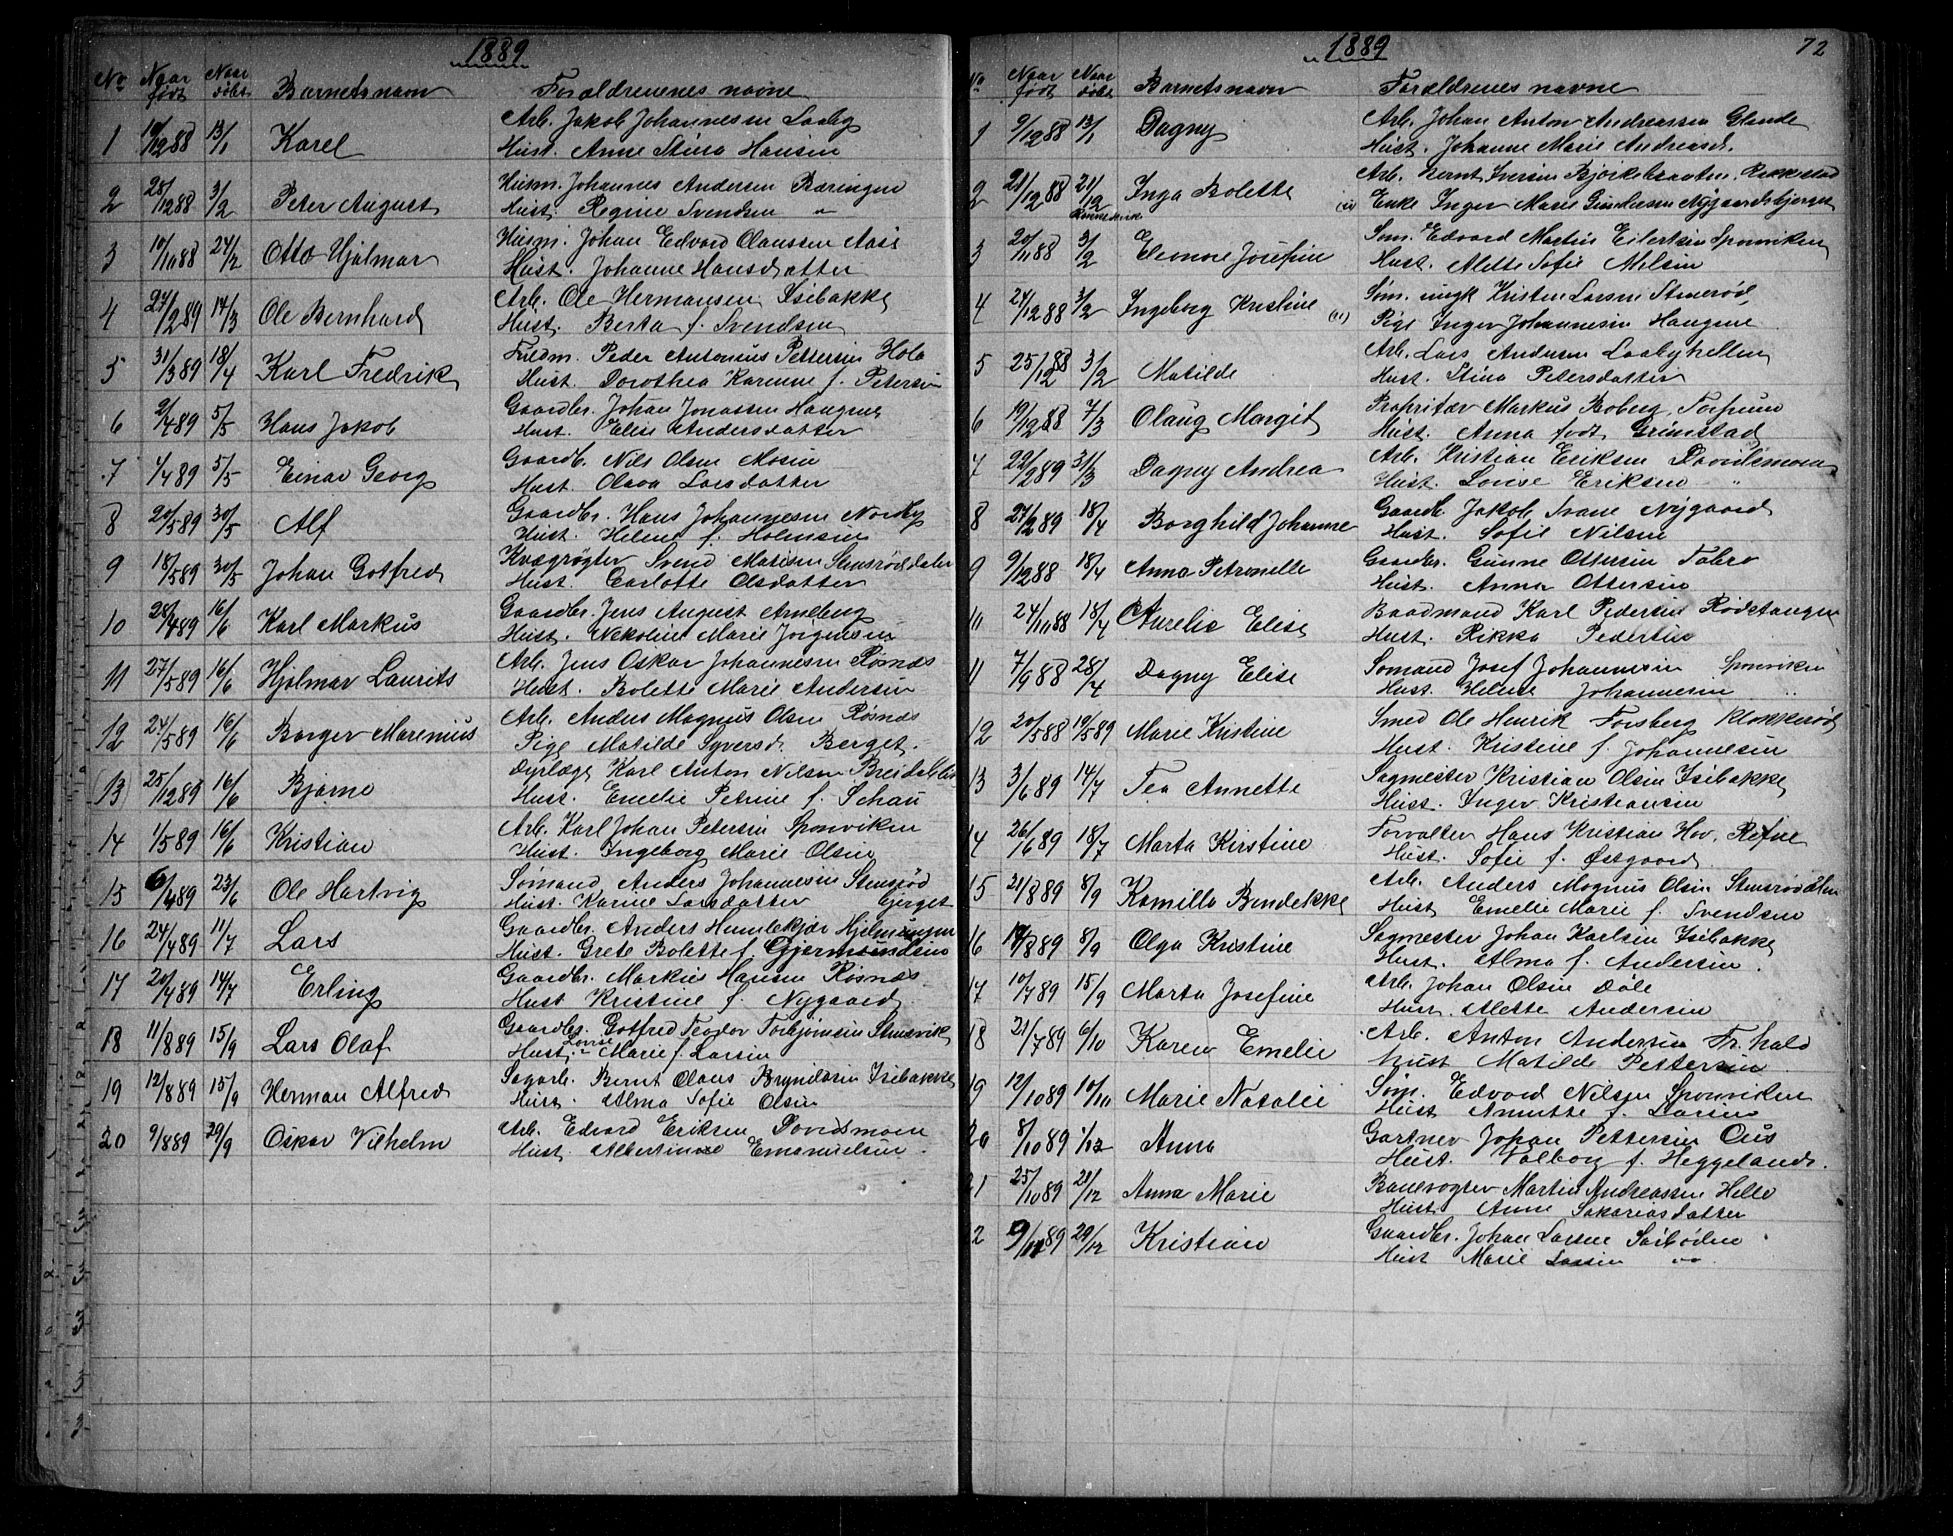 1889
No Naar født Naar døbt Barnets navn Forældrenes navne
1 10/12 88 13/1 Karel Arb. Jakob Johannesen Saaby
Hust. Anne Stina Hansen
2 28/12 88 3/2 Peter August Husm. Johannes Andersen Bæringen
Hust. Regine Svendsen "
3 10/11 88 24/2 Otto Hjalmar Husm. Johan Edvard Olaussen Aase
Hust. Johanne Hansdatter
4 27/2 89 14/3 Ole Bernhard Arb. Ole Hermansen Isebakke
Hust. Berta f. Svendsen
5 31/3 89 18/4 Karl Fredrik Peder Antonius Pettersen Holo
Hust. Dorothea Karenne f. Petersen
6 2/4 89 5/5 Hans Jakob Gaardbr. Johan Jonassen Haugene
Hust. Elise Andersdatter
7 1/4 89 5/5 Einar Georg Gaardb. Nils Olsen Mosen
Hust. Olava Larsdatter
8 20/5 89 30/5 Alf Gaardbr. Hans Johannesen Nordby
Hust. Helene f. Holmsen
9 18/5 89 30/5 Johan Gotfred Kvægrøgter Svend Matisen Stensrøddalen
Hust. Carlotte Olsdatter
10 28/4 89 16/6 Karl Markus Gaardbr. Jens August Arneberg
Hust. Nikoline Marie Jørgensen
11 27/5 89 16/6 Hjalmar Laurits Arb. Jens Oskar Johannesen Røsnæs
Hust. Bolette Marie Andersen
12 24/5 89 16/6 Borger Marenius Arb. Anders Magnus Olsen Røsnæs
Pige Matilde Syversd. Berget.
(13) 25/12 89 16/6 Bjarne Dyrlæge Karl Anton Nilsen
Hust. Emelie Petrine f. Schau
14 1/5 89 16/6 Kristian Arb. Karl Johan Petersen Sponviken
Hust. Ingeborg Marie Olsen
15 6/4 89 23/6 Ole Hartvig Sømand Anders Johannesen Stensrød
Hust. Karine Larsdatter Berget
16 24/4 89 11/7 Lars Gaardbr. Anders Humlekjær Hjelmungen
Hust. Grete Bolette f. Gjermundsen
17 20/4 89 14/7 Erling Gaardbr. Markus Hansen Røsnæs
Hust Kristine f. Nygaard
18 11/8 89 15/9 Lars Olaf Gaardbr. Gotfred Teodor Torbjørnsen Stensvik
Hust. Lovise Marie f. Larsen
19 12/8 89 15/9 Herman Alfred Sagarb. Bernt Olaus Bryndelsen Isebakke
Hust. Alma Sofie Olsen
20 9/8 89 29/9 Oskar Vilhelm Arb. Edvard Eriksen Davidsmoen
Hust. Albertine Emanuelsen.
1889 72
No Naar født Naar døbt Barnets navn Forældrenes navne
1 9/12 88 13/1 Dagny Arb. Johan Anton Andreassen Glende
Hust. Johanne Marie Andreasd.
2 21/12 88 21/12 Inga Bolette Arb. Bernt Iversen Bjørkebraaten, Rakkestad
Enke Inger Marie Gundersen Nygaardsbjerget
3 20/11 88 3/2 Eleonore Josefine Søm. Edvard Martin Eilertsen Sponviken
Hust. Alette Sofie Nilsen
4 24/12 88 3/2 Ingeborg Kristine Søm. ungk Kristen Larsen Stenerød
Pige Inger Johannesen Haugene
5 25/12 88 3/2 Matilde Arb. Lars Andersen Saabyhellen
Hust. Stina Petersdatter
6 19/12 88 7/3 Olaug Margit Proprietær Markus Boberg, Torpum
Hust. Anna født Grimstad
7 22/2 89 31/3 Dagny Andrea Arb. Kristian Eriksen Davidsmoen
Hust. Lovise Eriksen "
8 27/2 89 18/4 Borghild Johanne Gaardb. Jakob Svane Nygaard
Hust. Sofie Nilsen
9 9/12 88 18/4 Anna Petronelle Gaardbr. Gunne Ottersen Fabro
Hust. Anna Ottersen
10 24/11 88 18/4 Aurelie Elise Baadmand Karl Pedersen Rødstangen
Hust. Rikka Pedersen
11 7/9 88 28/4 Dagny Elise Sømand Josef Johannesen Sponviken
Hust. Helene Johannesen "
12 20/5 88 19/5 89 Marie Kristine Smed Ole Henrik Forsberg Klokkerød
Hust. Kristine f. Johannesen
13 3/6 89 14/7 Tea Annette Sagmester Kristian Olsen Isebakke
Hust. Inger Kristiansen
14 26/6 89 18/7 Marta Kirstine Forvalter Hans Kristian Hov, Refne
Hust. Sofie f. Østgaard.
15 21/8 89 8/9 Kamilla Bendikke Arb. Anders Magnus Olsen Stensrøddalen
Hust Emelie Marie f. Svendsen
16 14/8 89 8/9 Olga Kristine Sagmester Johan Karlsen Isebakke
Hust. Alma f. Andersen.
17 10/7 89 15/9 Marta Josefine Arb. Johan Olsen Dale
Hust. Alette Andersen
18 21/7 89 6/10 Karen Emelie Arb. Anton Andersen Fr.hald
Hust Matilde Pettersen
19 12/10 89 10/11 Marie Natalie Søm. Edvard Nilsen Sponviken
Hust Annette f. Larsen
20 8/10 89 1/12 Anna Gartner Johan Pettersen Ous
Hust. Valborg f. Heggeland.
21 25/10 89 21/12 Anna Marie Banevogter Martin Andreassen Helle
Hust. Anne Sakariasdatter
2 9/11 89 29/12 Kristian Gaardbr. Johan Larsen Sørbøden
Hust Marie Larsen "